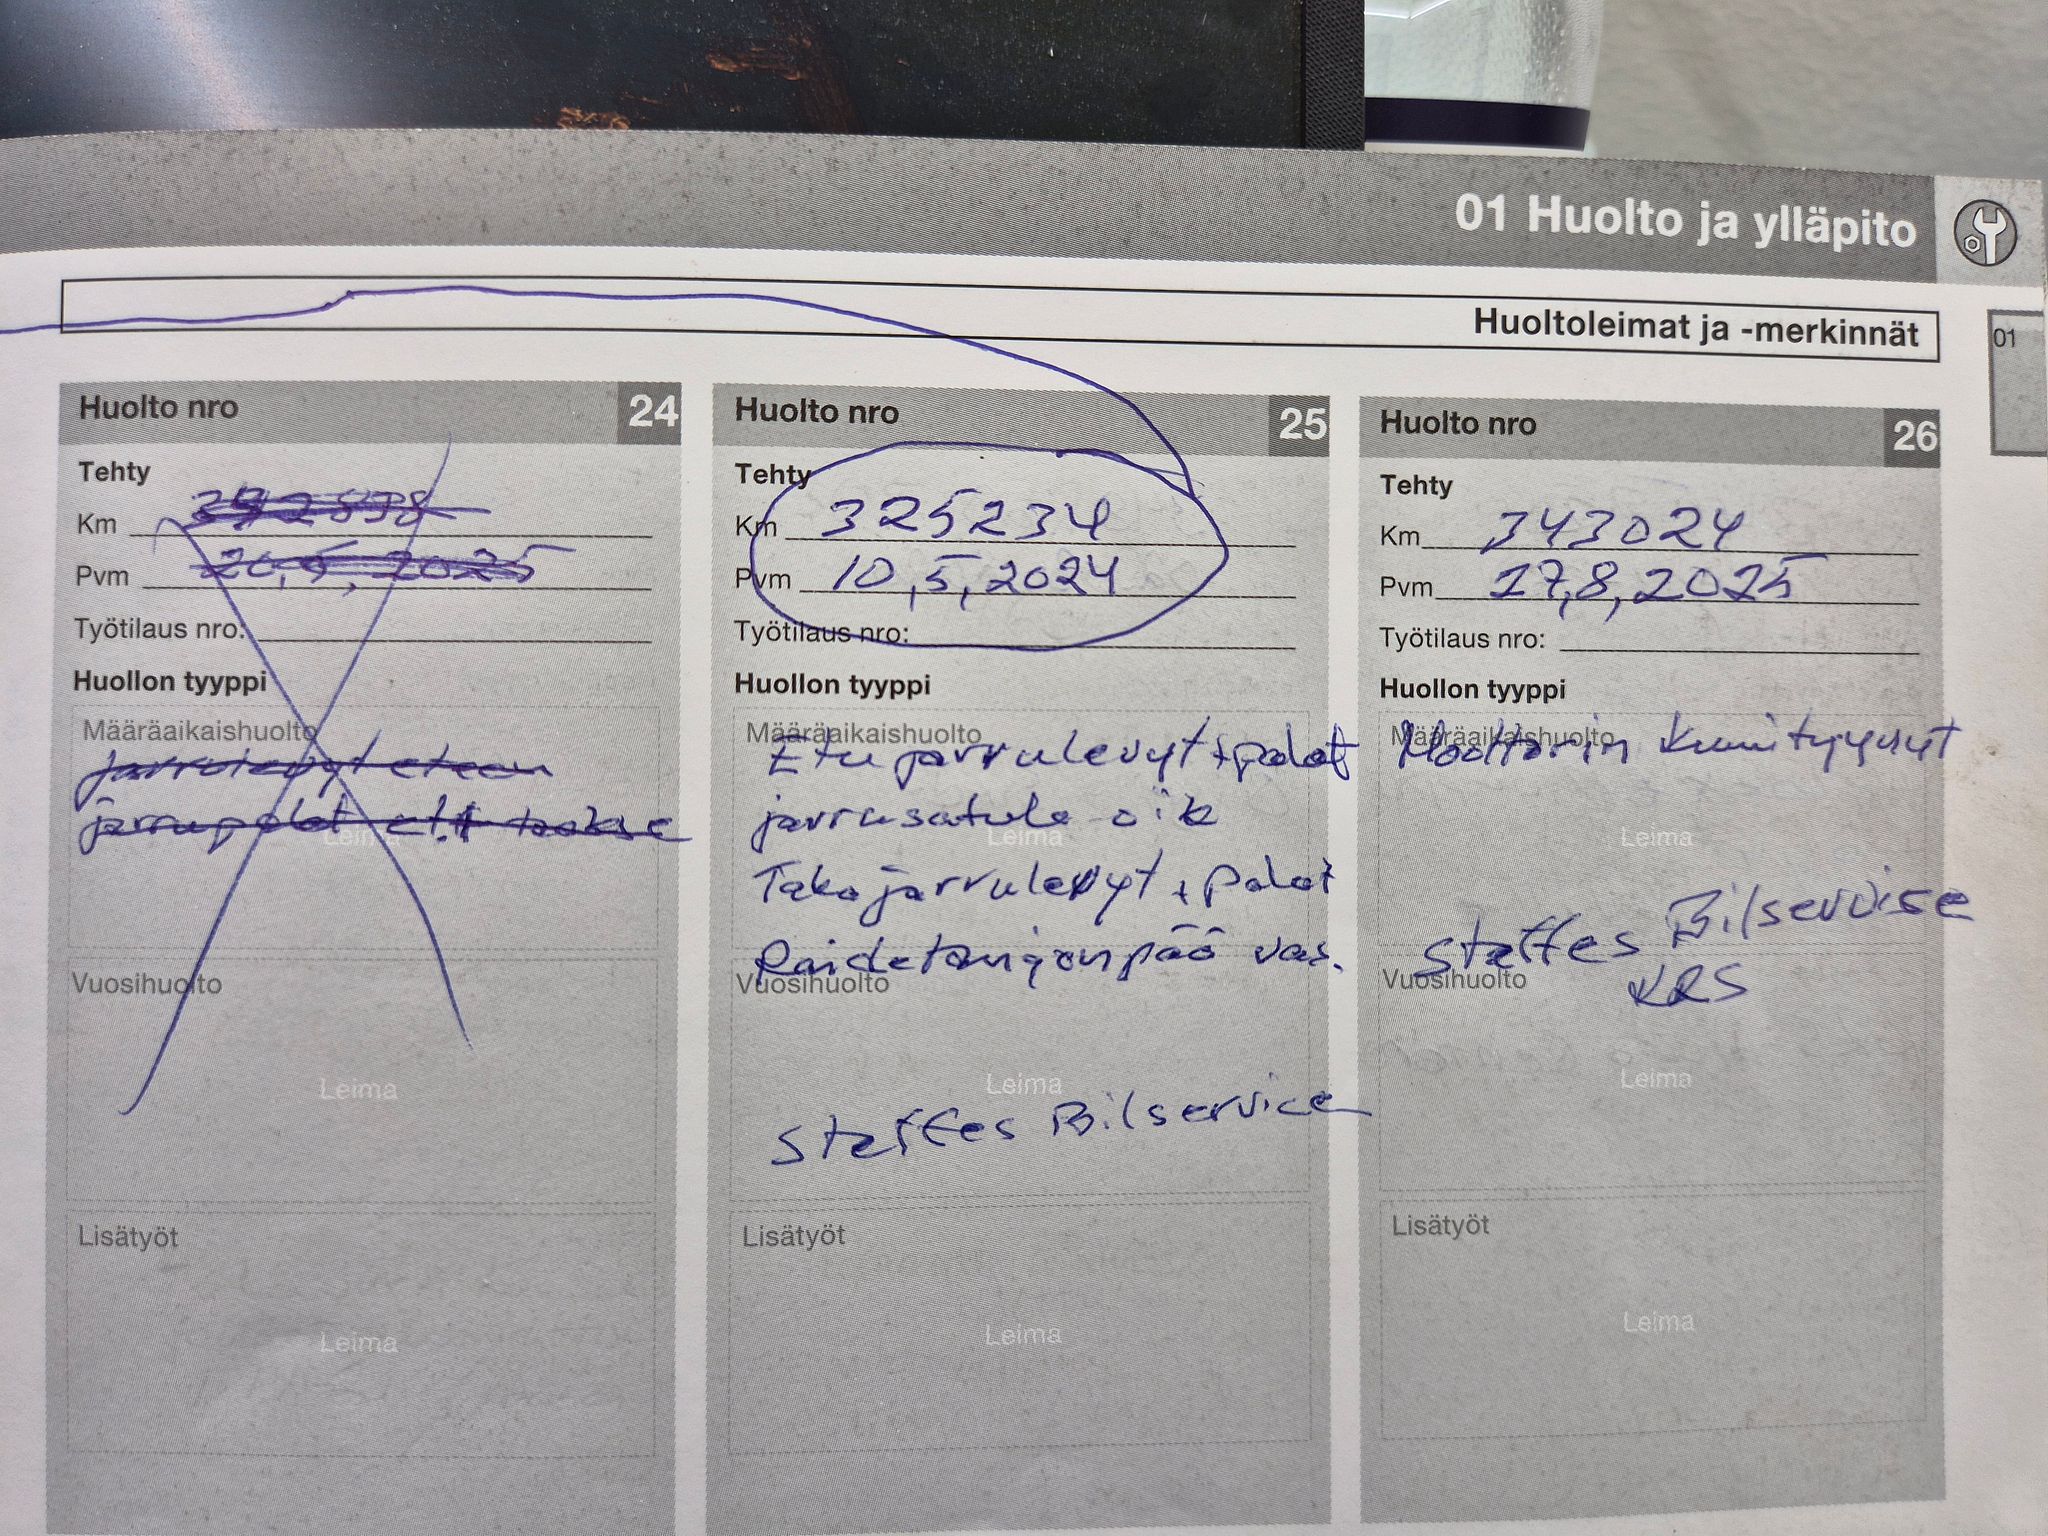 01 Huolto ja ylläpito
Huoltoleimat ja -merkinnät
01
Huolto nro 24
Tehty
Km
Pvm 20,5,2025
Työtilaus nro:
Huollon tyyppi
Määräaikaishuolto
jarrulevyt eteen
jarrupalat et.+ takse
Leima
Vuosihuolto
Leima
Lisätyöt
Leima
Huolto nro 25
Tehty
Km 325234
Pvm 10,5,2024
Työtilaus nro:
Huollon tyyppi
Määräaikaishuolto
Etu jarrulevyt + palat
jarrusatula oik
Leima
Taka jarrulevyt + palat
Raidetangonpää vas.
Vuosihuolto
Leima
Steffes Bilservice
Lisätyöt
Leima
Huolto nro 26
Tehty
Km 343024
Pvm 27,8,2025
Työtilaus nro:
Huollon tyyppi
Määräaikaishuolto
Moottorin kumityynyt
Leima
Steffes Bilservise
KRS
Vuosihuolto
Leima
Lisätyöt
Leima